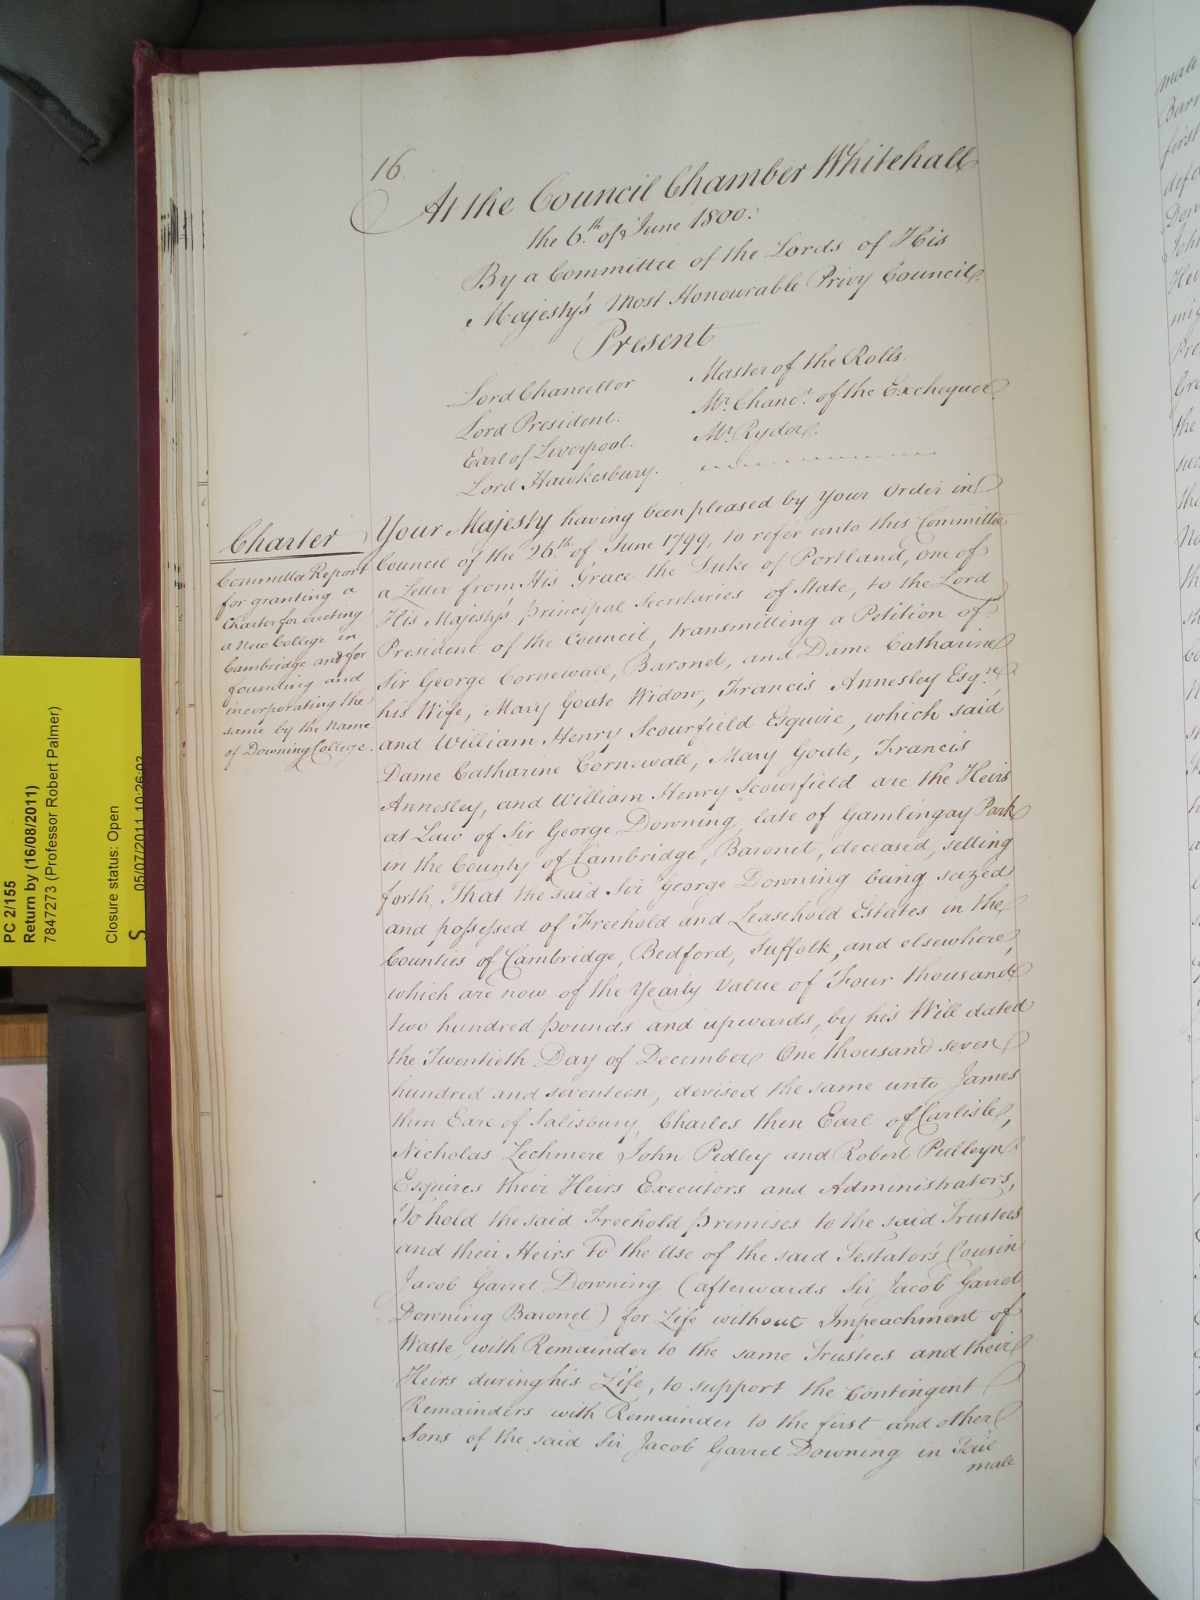 16.
At the Council Chamber Whitehall
the 6th of June 1800.
By a Committee of the Lords of His
Majesty's Most Honourable Privy Council.
Present
Lord Chancellor
Lord President.
Earl of Liverpool.
Lord Hawkesbury.
Master of the Rolls.
Mr. Chanr. of the Exchequer.
Mr. Ryder.
Charter
Committee Report
for granting a
Charter for erecting
a New College in
Cambridge and for
founding and
incorporating the
same by the Name
of Downing College.
Your Majesty having been pleased by Your Order in
Council of the 26.th of June 1799, to refer unto this Committee
a Letter from His Grace the Duke of Portland, one of
His Majesty's principal Secretaries of State, to the Lord
President of the Council, transmitting a Petition of
Sir George Cornewall, Baronet, and Dame Catharine
his Wife, Mary Goate Widow, Francis Annesley Esqre.
and William Henry Scourfield Esquire, which said
Dame Catharine Cornewall, Mary Goate, Francis
Annesley, and William Henry Scourfield are the Heirs
at Law of Sir George Downing, late of Gamlingay Park
in the County of Cambridge, Baronet, deceased, setting
forth, That the said Sir George Downing being seized
and possessed of Freehold and Leasehold Estates in the
Counties of Cambridge, Bedford, Suffolk, and elsewhere,
which are now of the Yearly Value of Four thousand
two hundred pounds and upwards, by his Will dated
the Twentieth Day of December One thousand seven
hundred and seventeen, devised the same unto James
then Earl of Salisbury, Charles then Earl of Carlisle,
Nicholas Lechmere John Pedley and Robert Pulleyn
Esquires their Heirs Executors and Administrators,
To hold the said Freehold premises to the said Trustees
and their Heirs To the Use of the said Testator's Cousin
Jacob Garret Downing (afterwards Sir Jacob Garret
Downing Baronet) for Life without Impeachment of
Waste, with Remainder to the same Trustees and their
Heirs during his Life, to support the Contingent
Remainders with Remainder to the first and other
Sons of the said Sir Jacob Garret Downing in Tail
male
PC 2/155
Return by (16/08/2011)
7847273 (Professor Robert Palmer)
Closure status: Open
S
05/07/2011 10:26:03